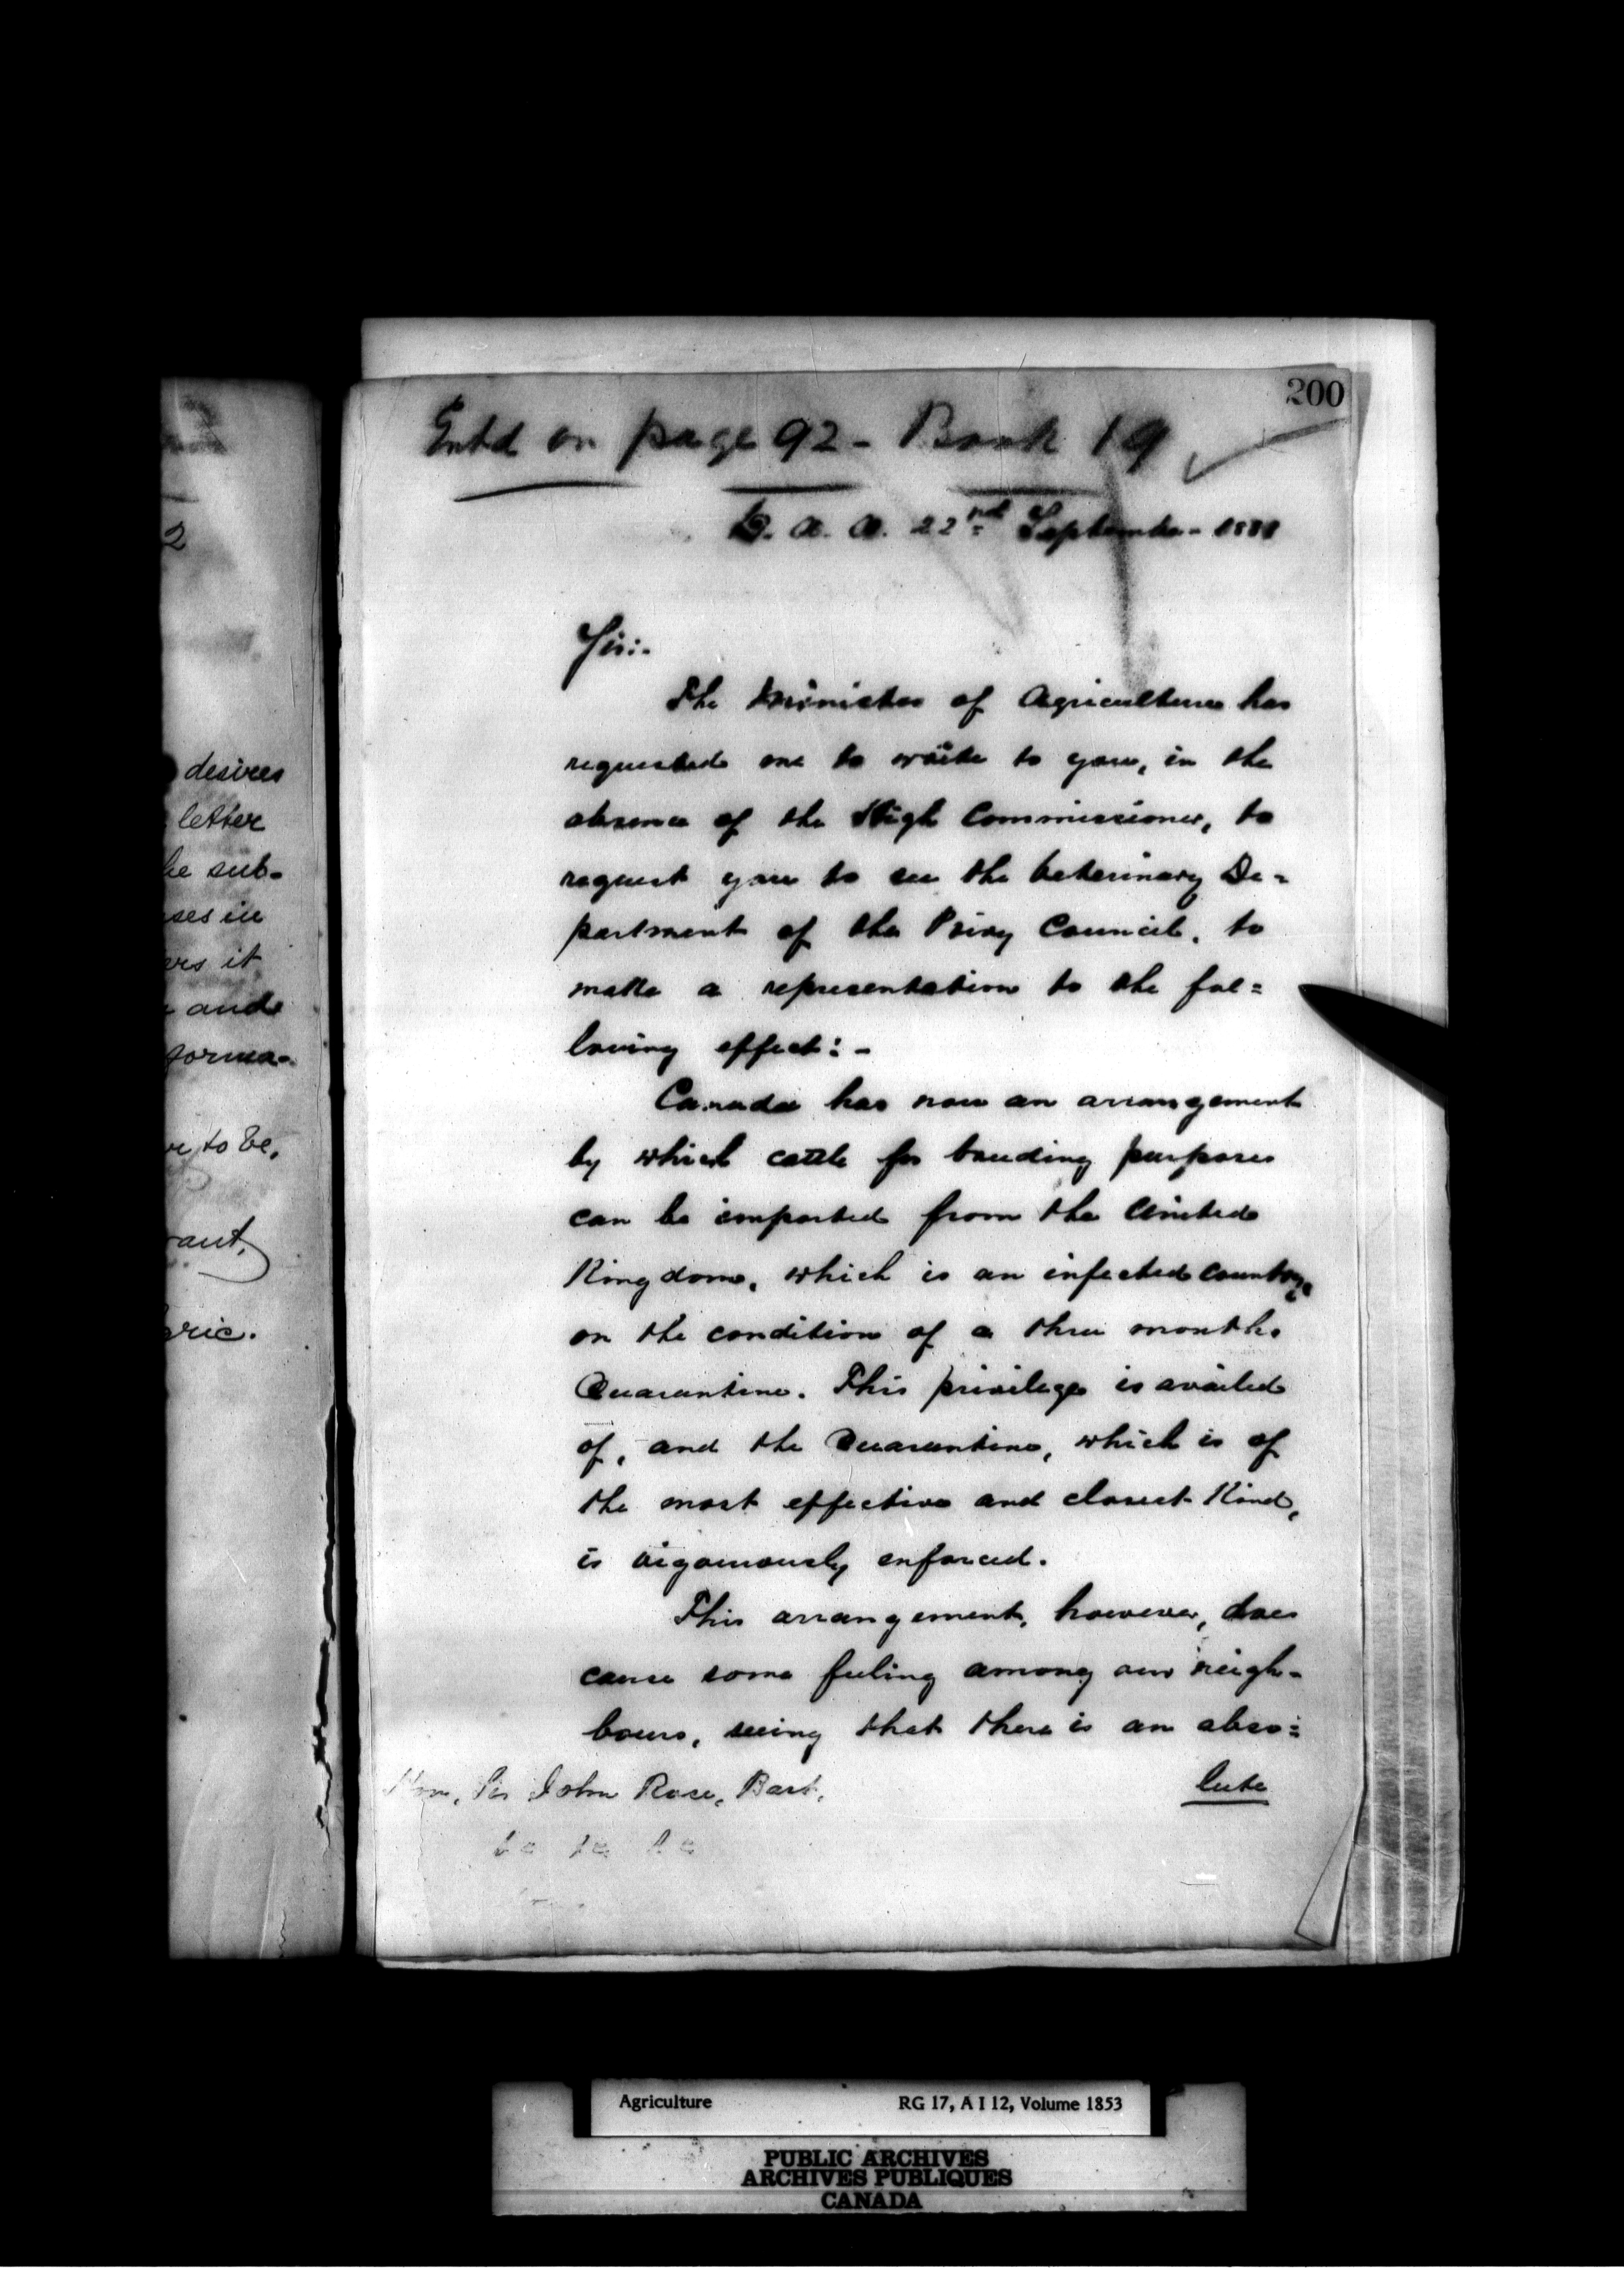 desires
letter
he sub-
ses in
ers it
and
forma-
to be,
ant,
ric.
200
Entd on page 92 - Book 19
D. A. O. 22nd September - 1881
Sir:-
The Minister of Agriculture has
requested me to write to you, in the
absence of the High Commissioner, to
request you to see the Veterinary De=
partment of the Privy Council, to
make a representation to the fol=
lowing effect:-
Canada has now an arrangement
by which cattle for breeding purposes
can be imported from the United
Kingdom, which is an infected country,
on the condition of a three months
Quarantine. This privilege is availed
of, and the Quarantine, which is of
the most effective and closest kind,
is vigorously enforced.
This arrangement, however, does
cause some feeling among our neigh-
bours, seeing that there is an abso=
lute
Hon. Sir John Rose, Bart.
&c &c &c
Agriculture RG 17, A I 12, Volume 1853
PUBLIC ARCHIVES
ARCHIVES PUBLIQUES
CANADA